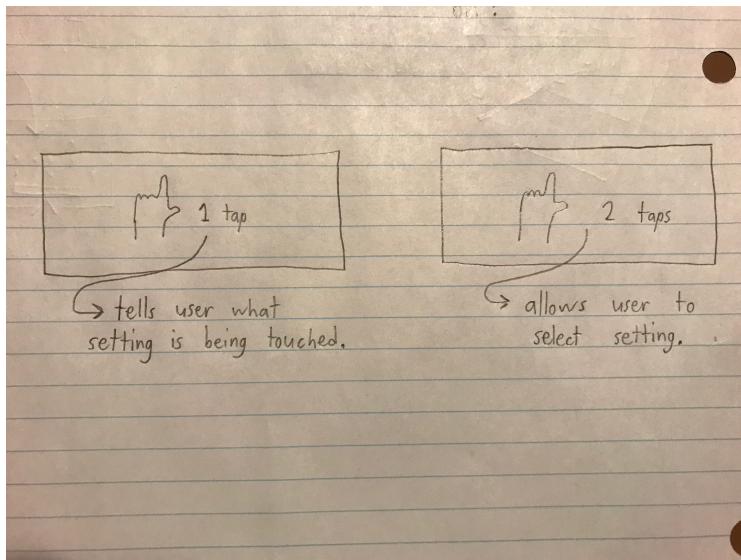 1 tap
tells user what
setting is being touched.
2 taps
allows user to
select setting.